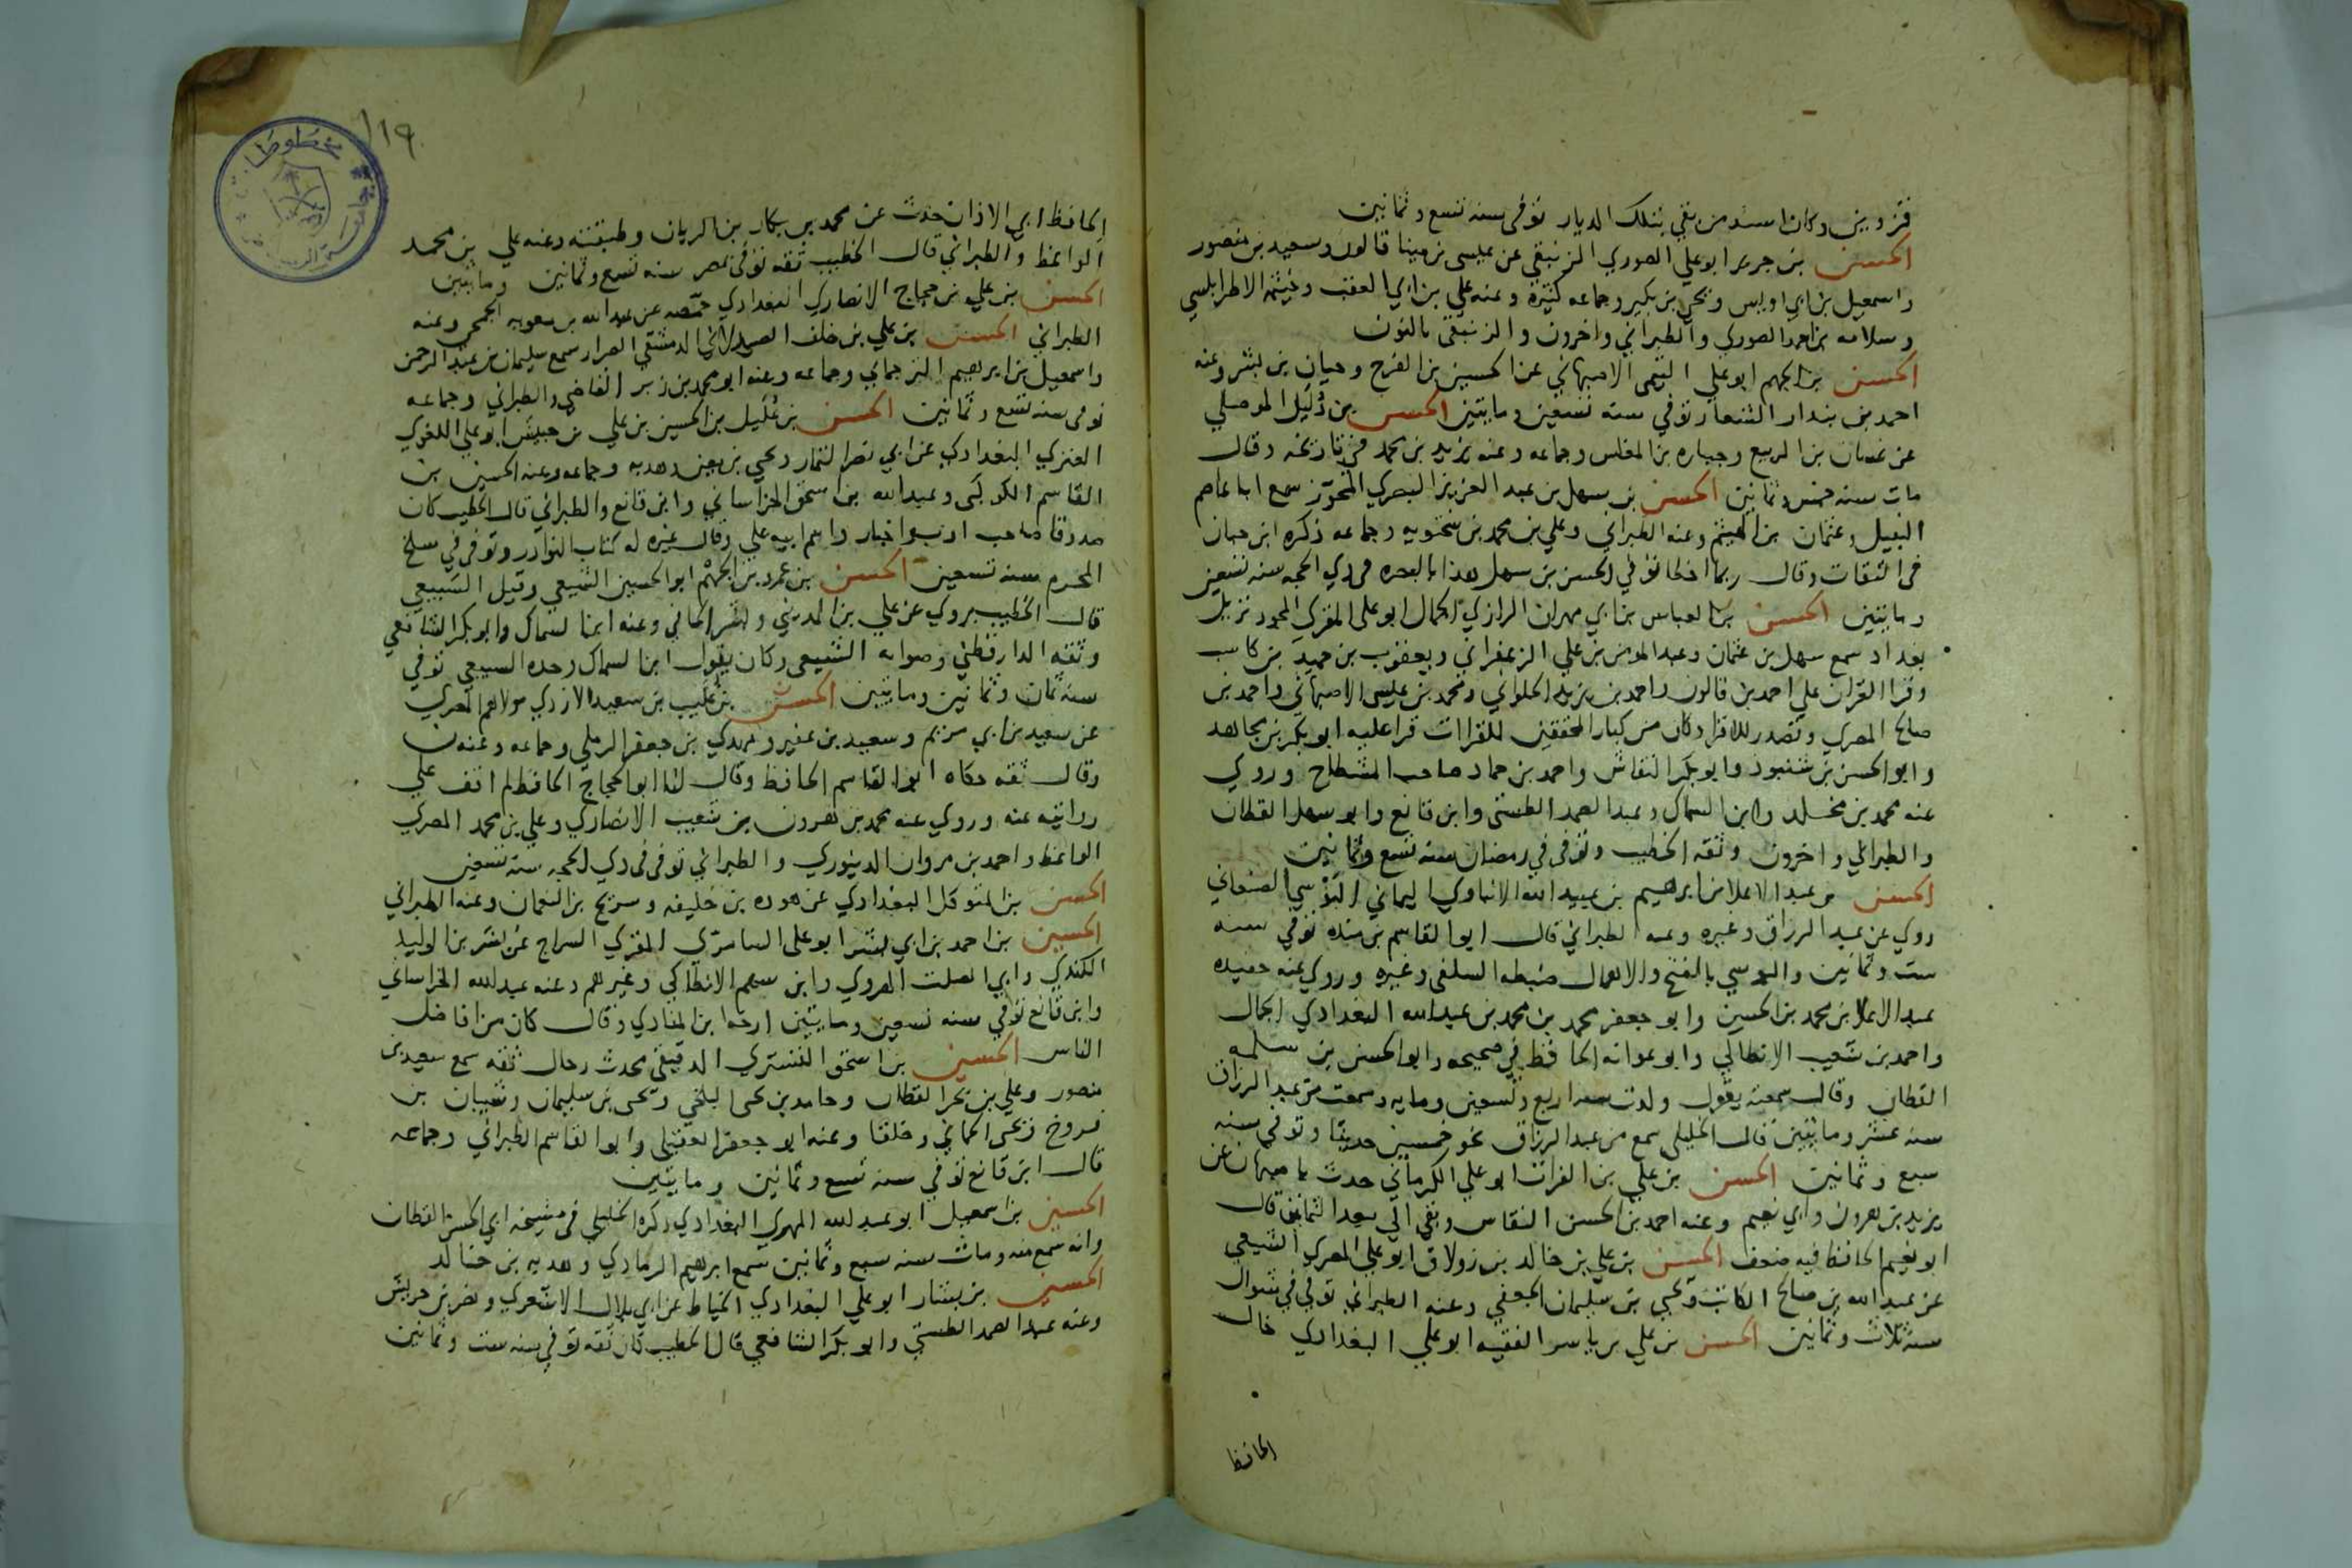 قزوين وكان اسند من بقي بتلك الديار توفي سنه تسع وثمانين
الحسن بن جرير ابو علي الصوري الزنبقي عن عيسى بن مينا قالون وسعيد بن منصور
واسمعيل بن ابي اويس ويحيى بن بكير وجماعه كثيرة وعنه علي بن ابي العقب وخيثمة الاطرابلسي
وسلامه بن احمد الصوري والطبراني واخرون والزنبقي بالنون
الحسن بن الجهم ابو علي التيمي الاصبهاني عن الحسين بن الفرج وحيان بن بشر وعنه
احمد بن بندار الشعار توفي سنه تسعين ومايتين الحسن بن دليل الموصلي
عن غسان بن الربيع وجباره بن المغلس وجماعه وعنه يزيد بن محمد في تاريخه وقال
مات سنه خمس وثمانين الحسن بن سهل بن عبد العزيز البصري المجوز سمع ابا عاصم
النبيل وعثمان بن الهيثم وعنه الطبراني وعلي بن محمد بن سختويه وجماعه ذكره ابن حبان
في الثقات وقال ربما اخطا توفي الحسن بن سهل هذا بالبصره في ذي الحجه سنه تسعين
ومايتين الحسن بن العباس بن ابي مهران الرازي الجمال ابو علي المقري المجود نزيل
بغداد سمع سهل بن عثمان وعبد المومن بن علي الزعفراني ويعقوب بن حميد بن كاسب
وقرا القران على احمد بن قالون واحمد بن يزيد الحلواني ومحمد بن عيسى الاصبهاني واحمد بن
صالح المصري وتصدر للاقرا وكان من كبار المحققين للقراات قرا عليه ابو بكر بن مجاهد
وابو الحسن بن شنبوذ وابو بكر النقاش واحمد بن حماد صاحب المشطاح وروي
عنه محمد بن مخلد وابن السماك وعبد الصمد الطستي وابن قانع وابو سهل القطان
والطبراني واخرون وثقه الخطيب وتوفي في رمضان سنه تسع وثمانين
الحسن بن عبد الاعلا بن ابراهيم بن عبيد الله الابناوي اليماني البوسي الصنعاني
روي عن عبد الرزاق وغيره وعنه الطبراني قال ابو القاسم بن منده توفي سنه
ست وثمانين والبوسي بالفتح والاهمال ضبطه السلفي وغيره وروي عنه حفيده
عبد الاعلا بن محمد بن الحسين وابو جعفر محمد بن محمد بن عبد الله البغدادي الجمال
واحمد بن شعيب الانطاكي وابو عوانه الحافظ في صحيحه وابو الحسن بن سلمه
القطان وقال سمعته يقول ولدت سنه اربع وتسعين ومايه وسمعت من عبد الرزاق
سنه عشر ومايتين قال الخليلي سمع من عبد الرزاق نحو خمسين حديثا وتوفي سنه
سبع وثمانين الحسن بن علي بن الفرات ابو علي الكرماني حدث باصبهان عن
يزيد بن هرون وابي نعيم وعنه احمد بن الحسن النقاس وبقي الي بعد الثمانين قال
ابو نعيم الحافظ فيه ضعف الحسن بن علي بن خالد بن زولاق ابو علي المصري الشيعي
عن عبد الله بن صالح الكاتب ويحيى بن سليمان الجعفي وعنه الطبراني توفي في شوال
سنه ثلاث وثمانين الحسن بن علي بن ياسر الفقيه ابو علي البغدادي خال
الحافظ
١١٩
الحافظ ابي الاذان حدث عن محمد بن بكار بن الريان وطبقته وعنه علي بن محمد
الواعظ والطبراني قال الخطيب ثقه توفي بمصر سنه تسع وثمانين ومايتين
الحسن بن علي بن حجاج الانصاري البغدادي حمصه عن عبد الله بن معويه الجمحي وعنه
الطبراني الحسن بن علي بن خلف الصيدلاني الدمشقي الصرار سمع سليمان بن عبد الرحمن
واسمعيل بن ابرهيم الترجماني وجماعه وعنه ابو محمد بن زبر القاضي والطبراني وجماعه
توفي سنه تسع وثمانين الحسن بن عليل بن الحسين بن علي بن حبيش ابو علي اللغوي
العنزي البغدادي عن ابي نصر التمار ويحيى بن معين وهدبه وجماعه وعنه الحسين بن
القاسم الكوكبي وعبد الله بن اسحق الخراساني وابن قانع والطبراني قال الخطيب كان
صدوقا صاحب ادب واخبار واسم ابيه علي وقال غيره له كتاب النوادر وتوفي في سلخ
المحرم سنه تسعين الحسن بن عمرو بن الجهم ابو الحسين الشيعي وقيل السبيعي
قال الخطيب يروي عن علي بن المديني وبشر الحافي وعنه ابنا السماك وابو بكر الشافعي
وثقه الدارقطني وصوابه الشيعي وكان يقول ابن السماك وحده السبيعي توفي
سنه ثمان وثمانين ومايتين الحسن بن غليب بن سعيد الازدي مولاهم المصري
عن سعيد بن ابي مريم وسعيد بن عفير ومهدي بن جعفر الرملي وجماعه وعنه ن
وقال ثقه حكاه ابو القاسم الحافظ وقال لنا ابو الحجاج الحافظ لم اقف على
روايته عنه وروي عنه محمد بن هرون بن شعيب الانصاري وعلي بن محمد المصري
الواعظ واحمد بن مروان الدينوري والطبراني توفي في ذي الحجه سنه تسعين
الحسن بن المتوكل البغدادي عن هوده بن خليفه وسريج بن النعمان وعنه الطبراني
الحسين بن احمد بن ابي بشر ابو علي السامري المقري السراج عن بشر بن الوليد
الكندي وابي الصلت الهروي وابن سهم الانطاكي وغيرهم وعنه عبد الله الخراساني
وابن قانع توفي سنه تسعين ومايتين ارخه ابن المنادي وقال كان من افاضل
الناس الحسين بن اسحق التستري الدقيقي محدث رحال ثقه سمع سعيد بن
منصور وعلي بن بحر القطان وحامد بن يحيى البلخي ويحيى بن سليمان وشيبان بن
فروخ ويحيى الحماني وخلقا وعنه ابو جعفر العقيلي وابو القاسم الطبراني وجماعه
قال ابن قانع توفي سنه تسع وثمانين ومايتين
الحسين بن اسمعيل ابو عبد الله المهري البغدادي ذكره الخليلي في مشيخه ابي الحسن القطان
وانه سمع منه ومات سنه سبع وثمانين سمع ابرهيم الرمادي وهدبه بن خالد
الحسين بن بشار ابو علي البغدادي الخياط عن ابي بلال الاشعري ونصر بن حريش
وعنه عبد الصمد الطستي وابو بكر الشافعي قال الخطيب كان ثقه توفي سنه ست وثمانين